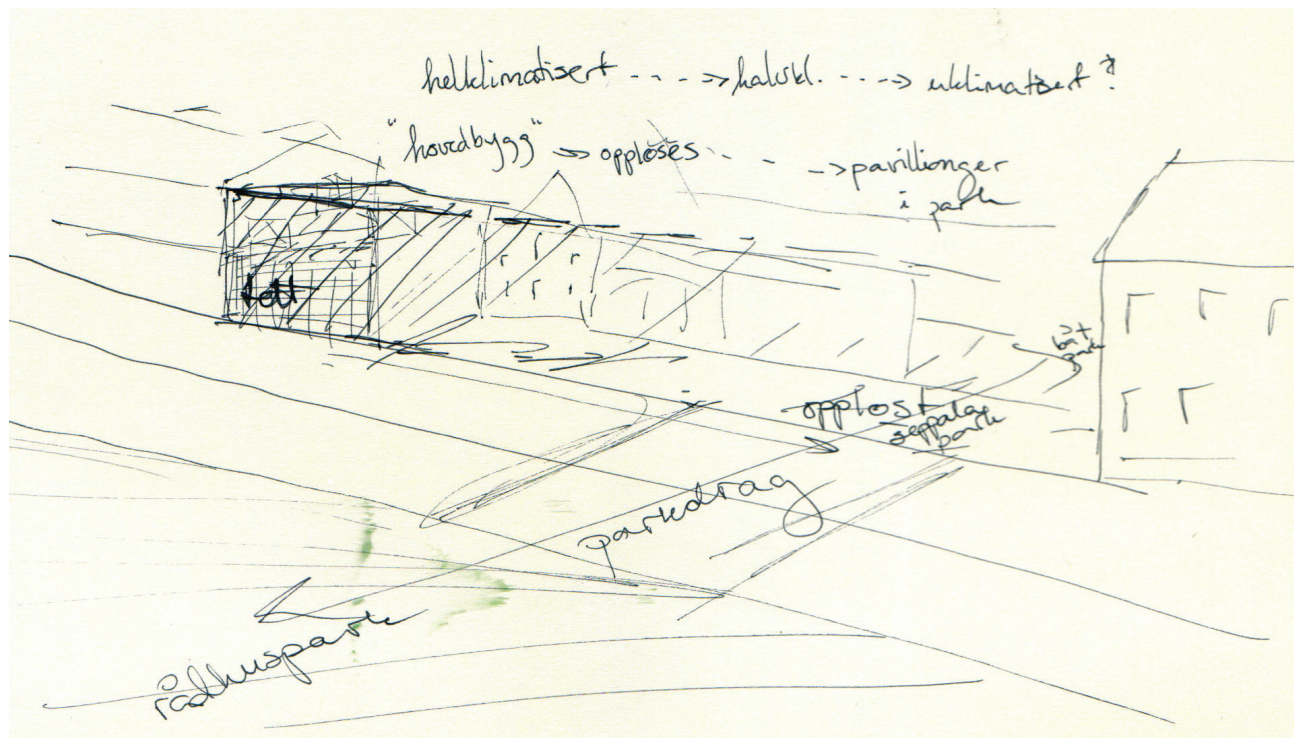 helklimatisert ---> halvkl. ---> uklimatisert?
"hovedbygg" => oppløses - - -> pavillionger
i park
tett
bæt
park
oppløst
seppala
park
parkdrag
rådhuspark